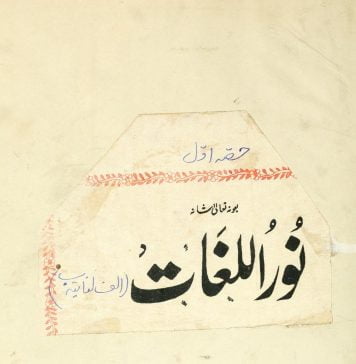 حصّہ اوّل
بعونہ تعالیٰ شانہ
نُورُ اللغَات
(الف لغایتہ ب)